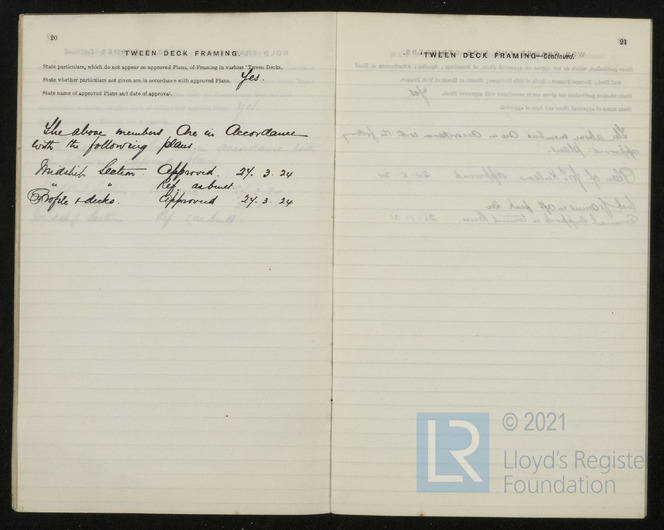 20
TWEEN DECK FRAMING.
State particulars, which do not appear on approved Plans, of Framing in various 'Tween Decks.
State whether particulars not given are in accordance with approved Plans. Yes.
State name of approved Plans and date of approval.
The above members are in accordance
with the following plans
Midship Section Approved. 24. 3. 24
" " Ref. as built.
Profile & decks. Approved 24. 3. 24
21
'TWEEN DECK FRAMING—Continued.
LR
© 2021
Lloyd's Register
Foundation